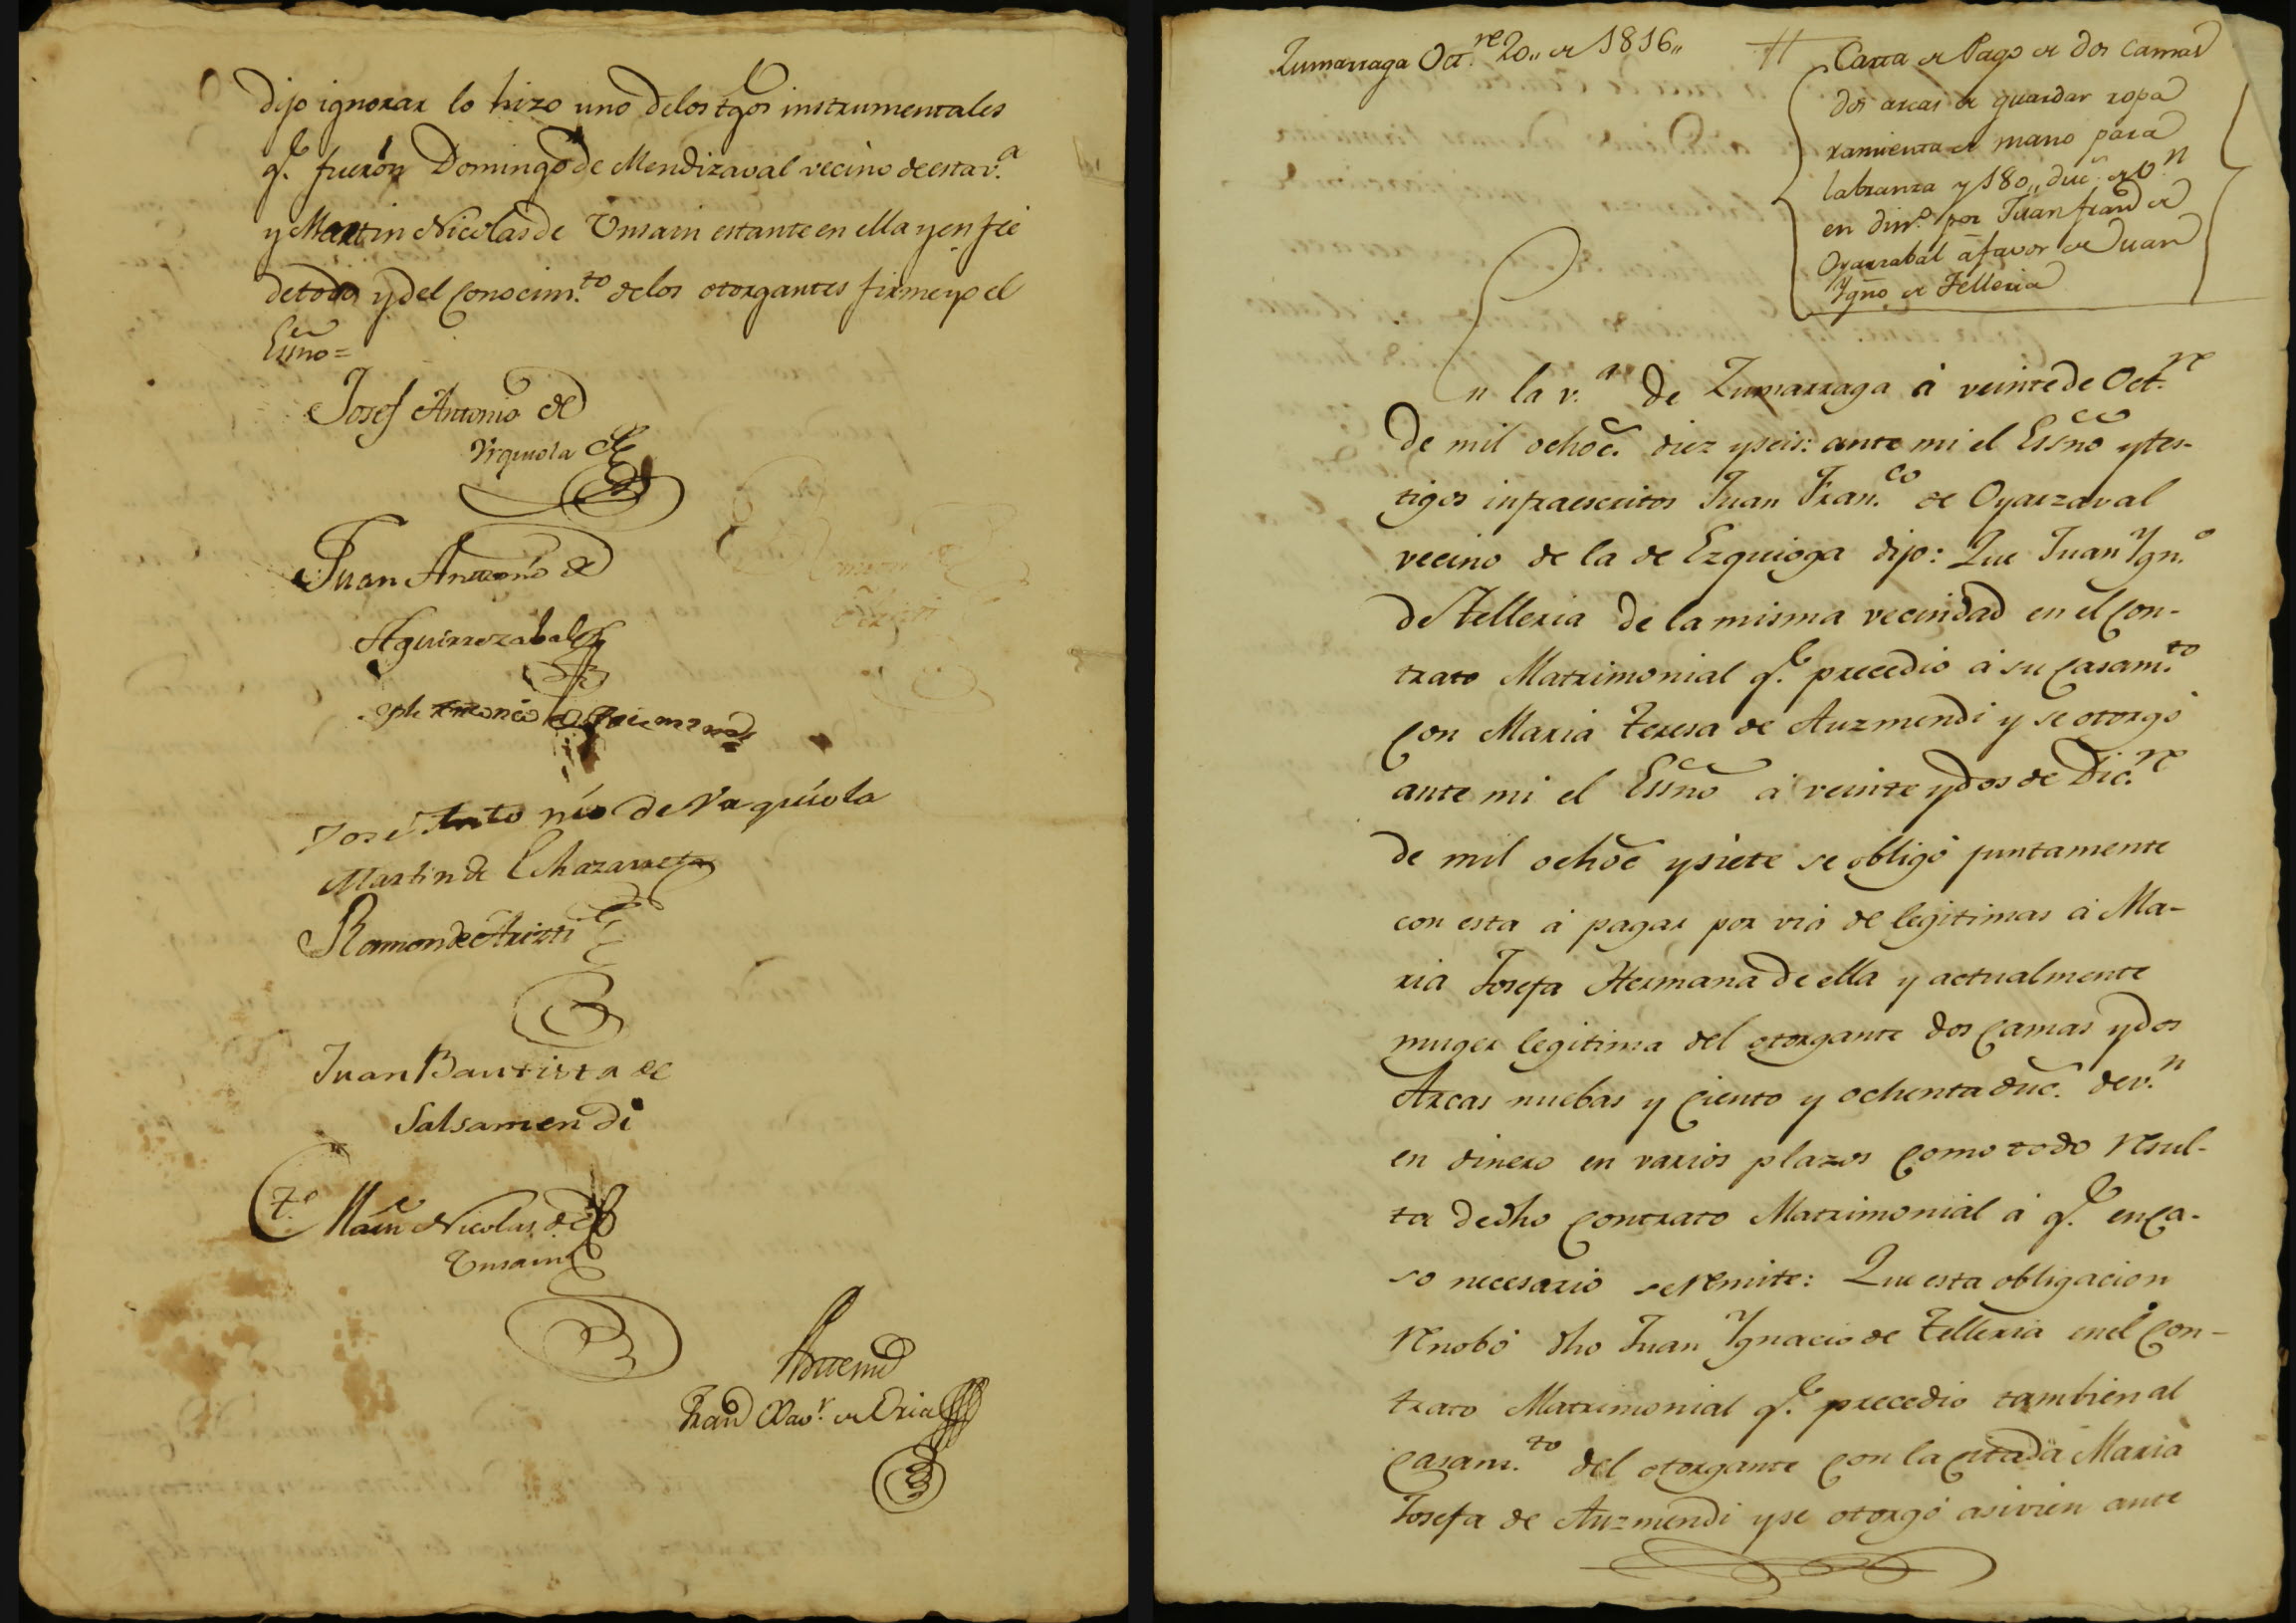 dijo ignorar lo hizo uno delos tgos instrumentales
q.e fueron Domingo de Mendizaval vecino de esta v.a
y Martin Nicolas de Unsain estante en ella y en fee
de todo y del conocim.to delos otorgantes firme yo el
Essno=
Josef Antonio de
Vrquiola
Juan Antonio de
Aguirrezabal
Jph Antonio de
José Antonio de Vrquiola
Martin de Echazarreta
Ramon de Arizti
Juan Bautista de
Salsamendi
t.o Marn Nicolas de
Unsain
Antemi
Fran.co Xav.r de Oria
Zumarraga Oct.re 20,, de 1816,,
Carta de Pago de dos camas
dos arcas de guardar ropa
ramienta de mano para
labranza y 180,, duc.s de v.n
en din.o por Juan fran.co de
Oyarzabal á favor de Juan
Ygno de Telleria
En la v.a de Zumarraga á veinte de Oct.re
de mil ochoc. diez y seis: ante mi el Essno y tes-
tigos infraescritos Juan Fran.co de Oyarzaval
vecino de la de Ezquioga dijo: Que Juan Ygn.o
de Telleria de la misma vecindad en el con-
trato Matrimonial q.e precedio á su casam.to
con Maria Teresa de Auzmendi y se otorgó
ante mi el Essno á veinte y dos de Dic.re
de mil ochoc y siete se obligó juntamente
con esta á pagar por via de legitimas á Ma-
ria Josefa Hermana de ella y actualmente
muger legitima del otorgante dos camas y dos
Arcas nuebas y ciento y ochenta duc. de v.n
en dinero en varios plazos como todo resul-
ta de dho contrato Matrimonial á q.e en ca-
so necesario se remite: Que esta obligacion
renobó dho Juan Ygnacio de Telleria en el con-
trato Matrimonial q.e precedio tambien al
casam.to del otorgante con la citada Maria
Josefa de Auzmendi y se otorgó asivien ante